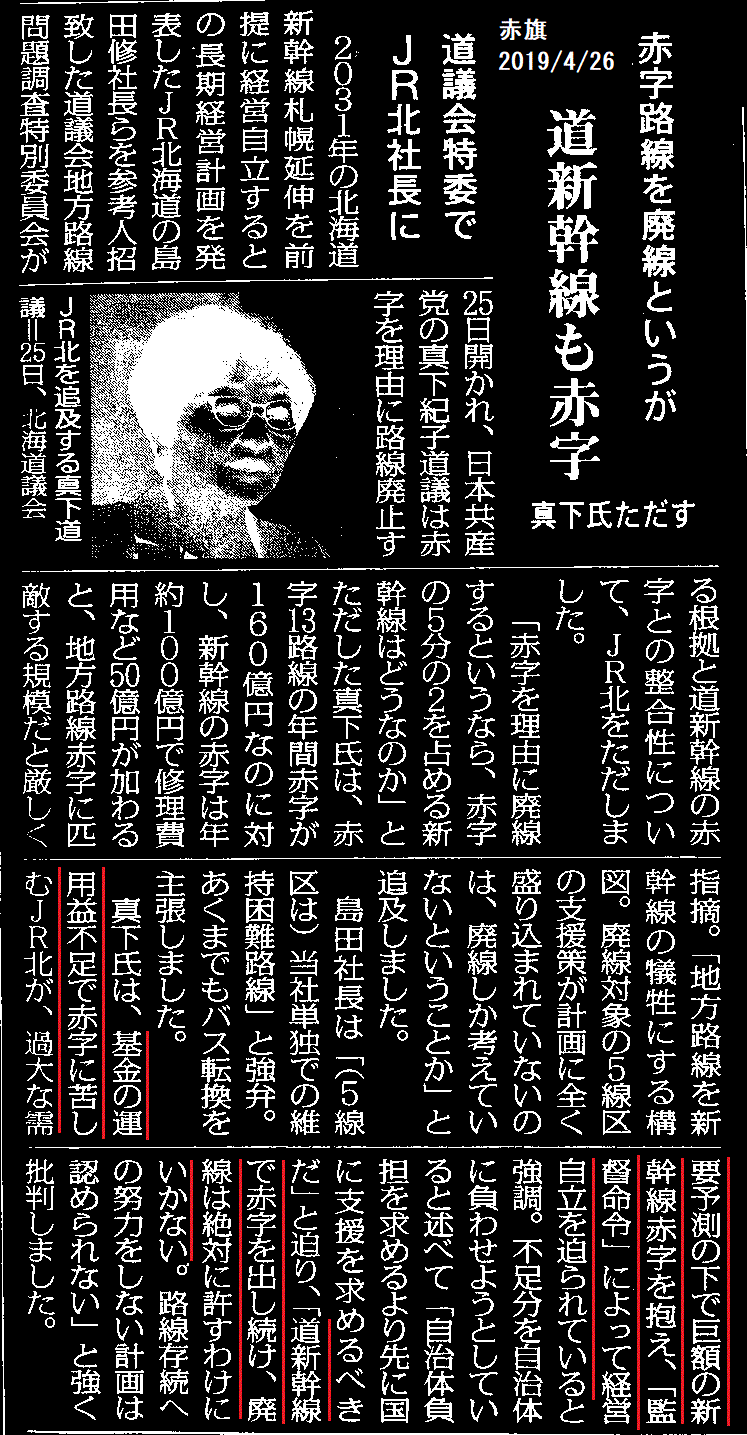 赤旗
2019/4/26
赤字路線を廃線というが
道新幹線も赤字
真下氏ただす
道議会特委で
JR北社長に
2031年の北海道
新幹線札幌延伸を前
提に経営自立すると
の長期経営計画を発
表したJR北海道の島
田修社長らを参考人招
致した道議会地方路線
問題調査特別委員会が
25日開かれ、日本共産
党の真下紀子道議は赤
字を理由に路線廃止す
JR北を追及する真下道
議=25日、北海道議会
る根拠と道新幹線の赤
字との整合性につい
て、JR北をただしま
した。
「赤字を理由に廃線
するというなら、赤字
の5分の2を占める新
幹線はどうなのか」と
ただした真下氏は、赤
字13路線の年間赤字が
160億円なのに対
し、新幹線の赤字は年
約100億円で修理費
用など50億円が加わる
と、地方路線赤字に匹
敵する規模だと厳しく
指摘。「地方路線を新
幹線の犠牲にする構
図。廃線対象の5線区
の支援策が計画に全く
盛り込まれていないの
は、廃線しか考えてい
ないということか」と
追及しました。
島田社長は「(5線
区は)当社単独での維
持困難路線」と強弁。
あくまでもバス転換を
主張しました。
真下氏は、基金の運
用益不足で赤字に苦し
むJR北が、過大な需
要予測の下で巨額の新
幹線赤字を抱え、「監
督命令」によって経営
自立を迫られていると
強調。不足分を自治体
に負わせようとしてい
ると述べて「自治体負
担を求めるより先に国
に支援を求めるべき
だ」と迫り、「道新幹線
で赤字を出し続け、廃
線は絶対に許すわけに
いかない。路線存続へ
の努力をしない計画は
認められない」と強く
批判しました。